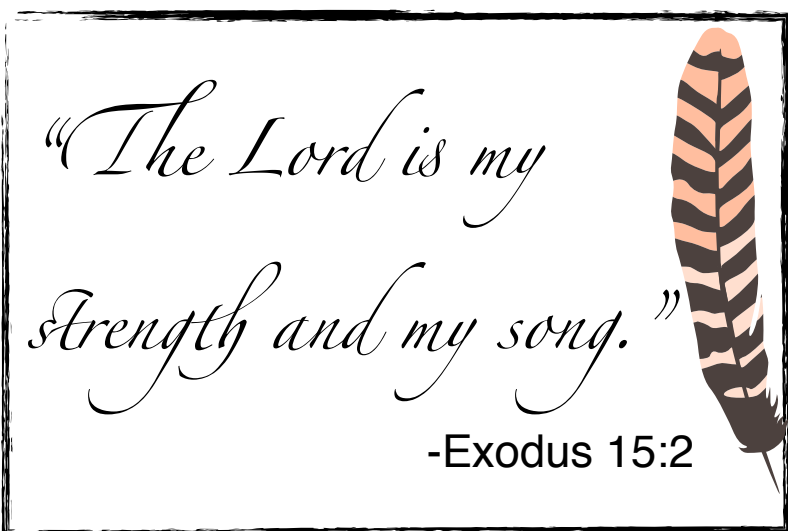 “The Lord is my
strength and my song.”
-Exodus 15:2